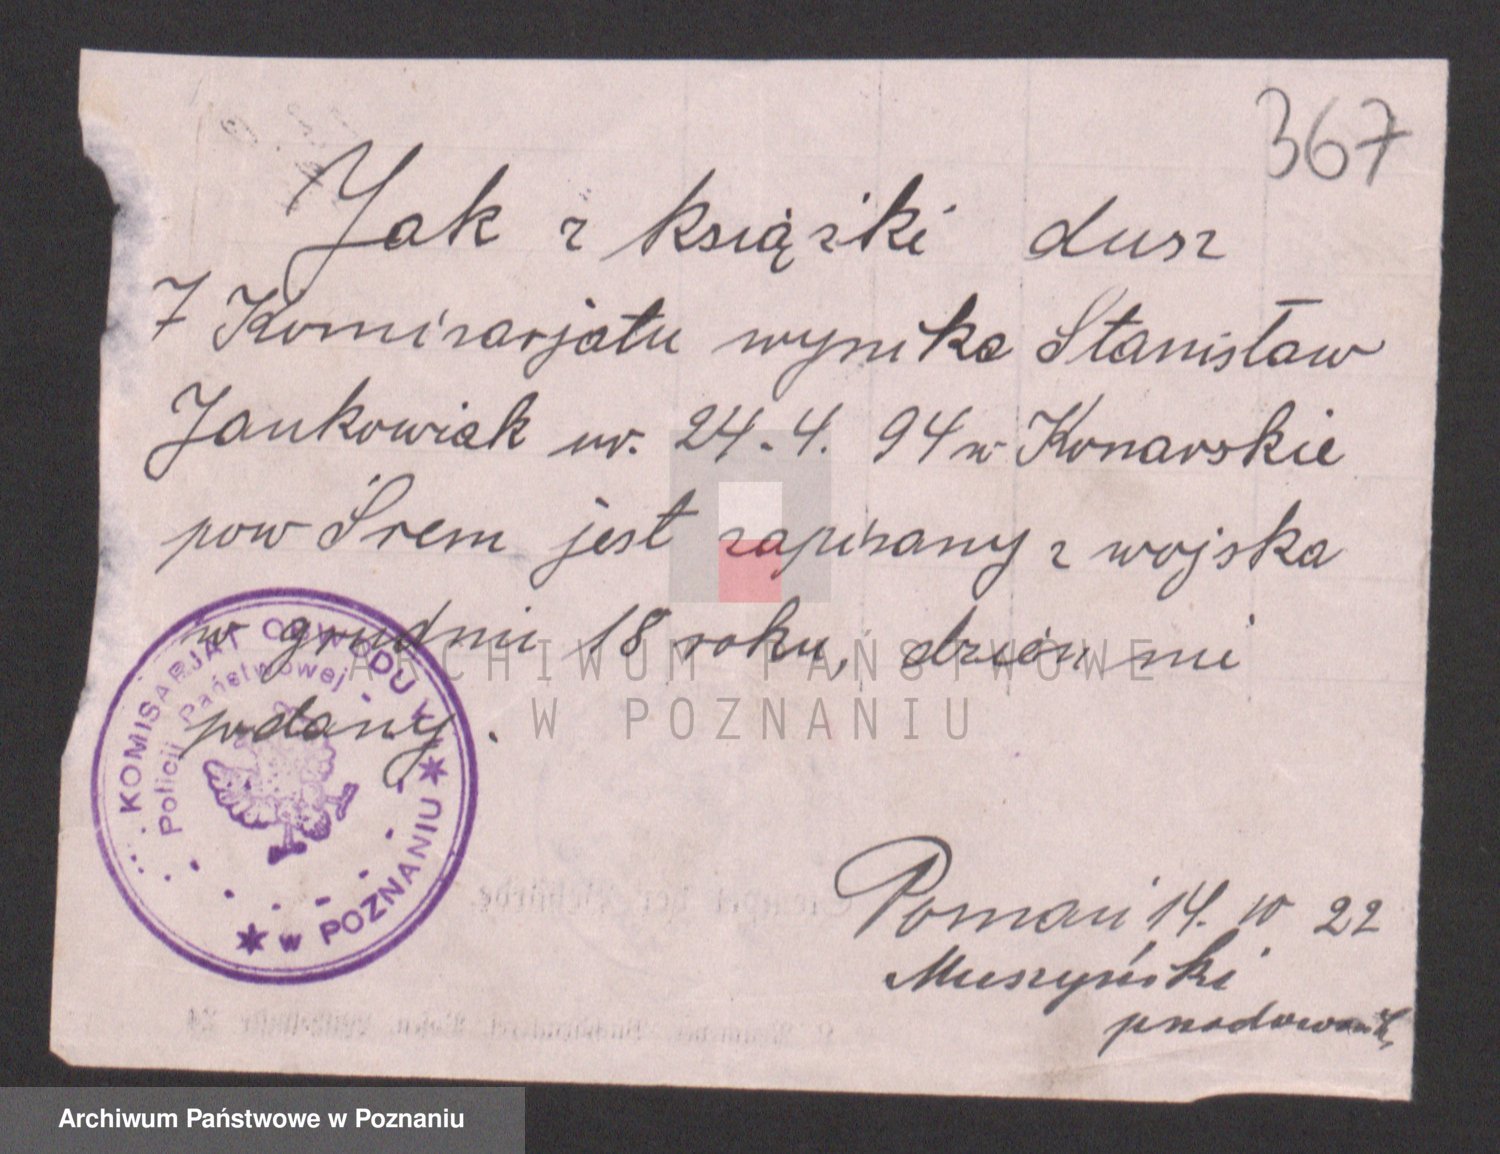 367
Jak z książki dusz
7 Komisarjatu wynika Stanisław
Jankowiak ur. 24.4. 94 w Konarskie
pow Śrem jest zapisany z wojska
w grudniu 18 roku, dzień ni
podany.
KOMISARJAT OBWODU V
Policji Państwowej
w POZNANIU
ARCHIWUM PAŃSTWOWE
W POZNANIU
Poznań 14. IV 22
Muszyński
przodownik
Archiwum Państwowe w Poznaniu